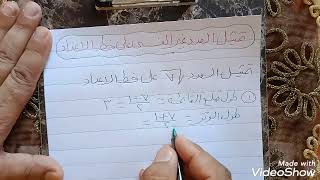 تمثيل العدد غير النسبى على خط الاعداد
تمثيل العدد √٧ على خط الاعداد
① طول ضلع القائمة = ٧-١ / ٢ = ٣
طول الوتر = ٧+١ / ٢ =
Made with
VideoShow